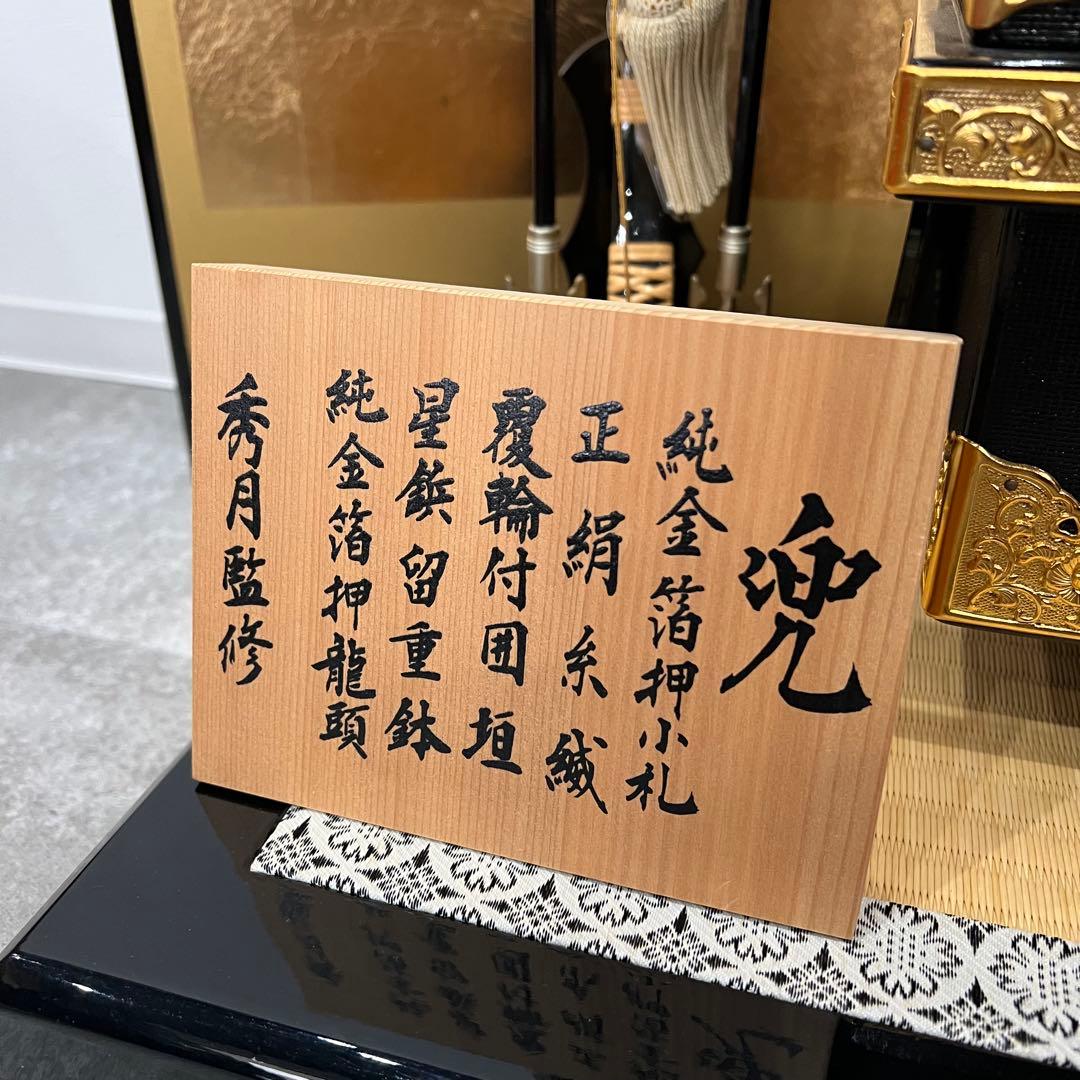 兜
純金箔押小札
正絹糸縅
覆輪付囲垣
星鋲留重鉢
純金箔押龍頭
秀月監修